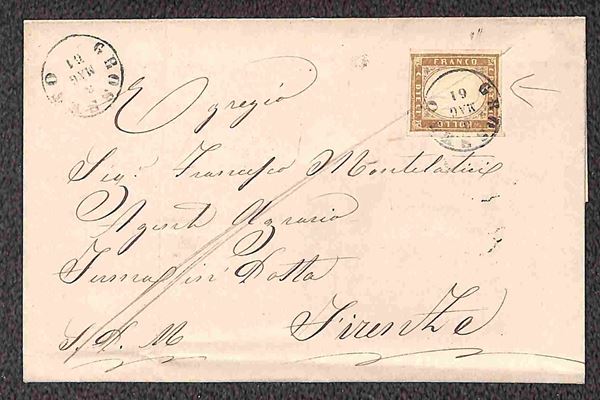 GROSSETO
2
MAG
61
FRANCO
BOLLO
C. DIECI
GROSSETO
MAG
61
Egregio
Sig.r Francesco Montelatici
Agente Agrario
Firenze
S. P. M.